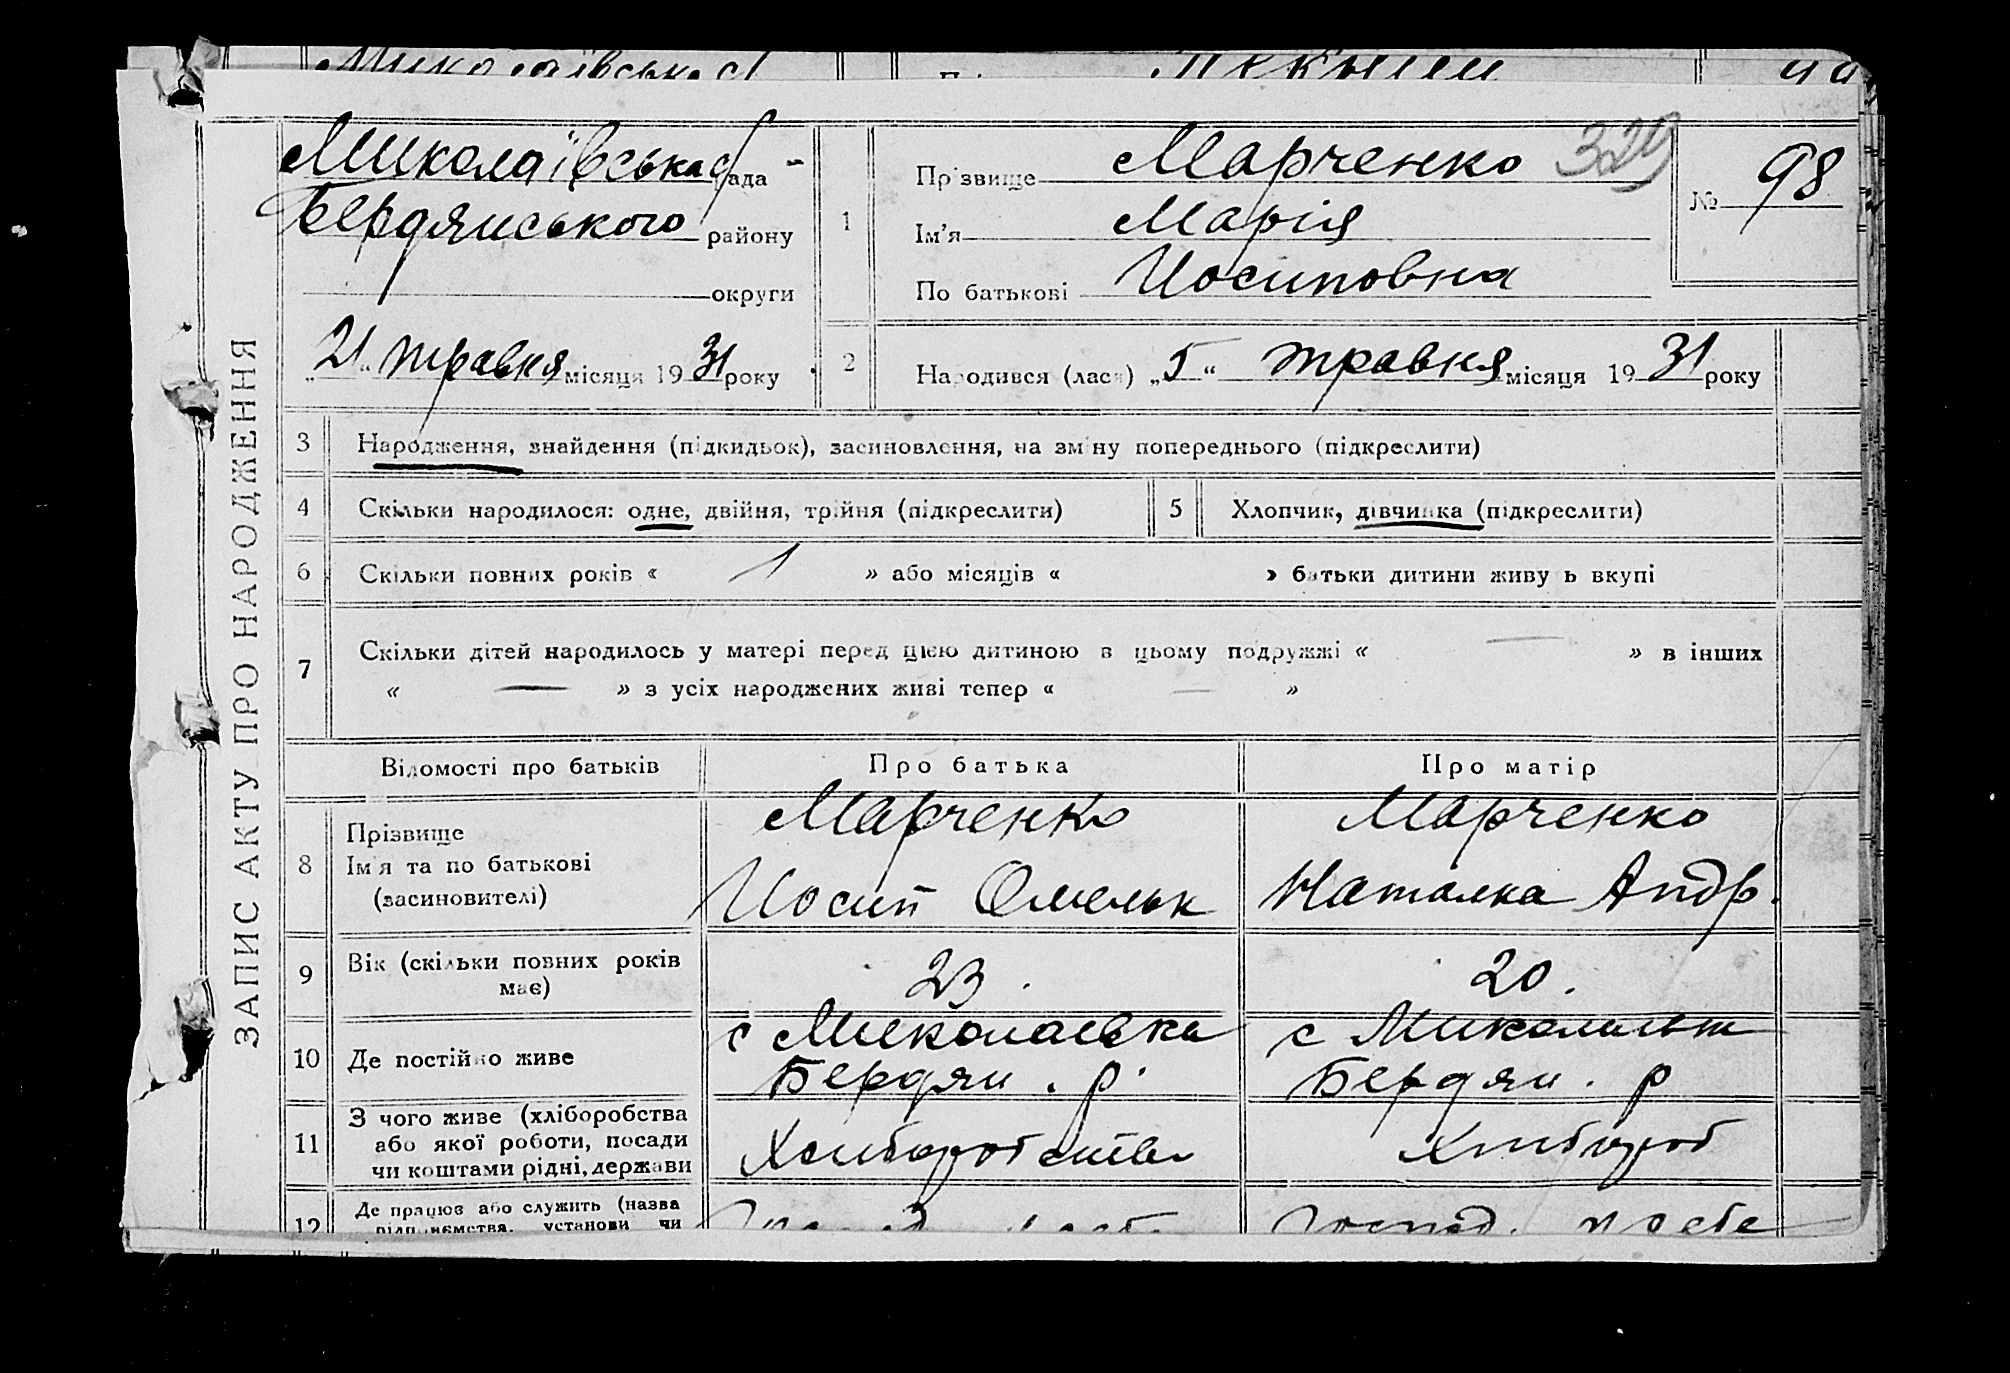 Миколаївська с/рада
Бердянського району
округи
„21“ травня місяця 1931 року
329
№ 98
1
Прізвище Марченко
Ім'я Марія
По батькові Иосиповна
2
Народився (лася) „5“ травня місяця 1931 року
ЗАПИС АКТУ ПРО НАРОДЖЕННЯ
3 Народження, знайдення (підкидьок), засиновлення, на зміну попереднього (підкреслити)
4 Скільки народилося: одне, двійня, трійня (підкреслити)
5 Хлопчик, дівчинка (підкреслити)
6 Скільки повних років « 1 » або місяців « » батьки дитини живуть вкупі
7 Скільки дітей народилось у матері перед цією дитиною в цьому подружжі « — » в інших
« — » з усіх народжених живі тепер « — »
Відомості про батьків
Про батька
Про матір
8
Прізвище
Ім'я та по батькові
(засиновителі)
Марченко
Иосип Омельк
Марченко
Наталка Андр.
9
Вік (скільки повних років
має)
23.
20.
10 Де постійно живе
с Миколаевка
Бердян. р.
с Миколаьвк
Бердян. р
11
З чого живе (хліборобства
або якої роботи, посади
чи коштами рідні, держави
Хлиборобств
Хлибороб
12
Де працює або служить (назва
підприємства, установи чи